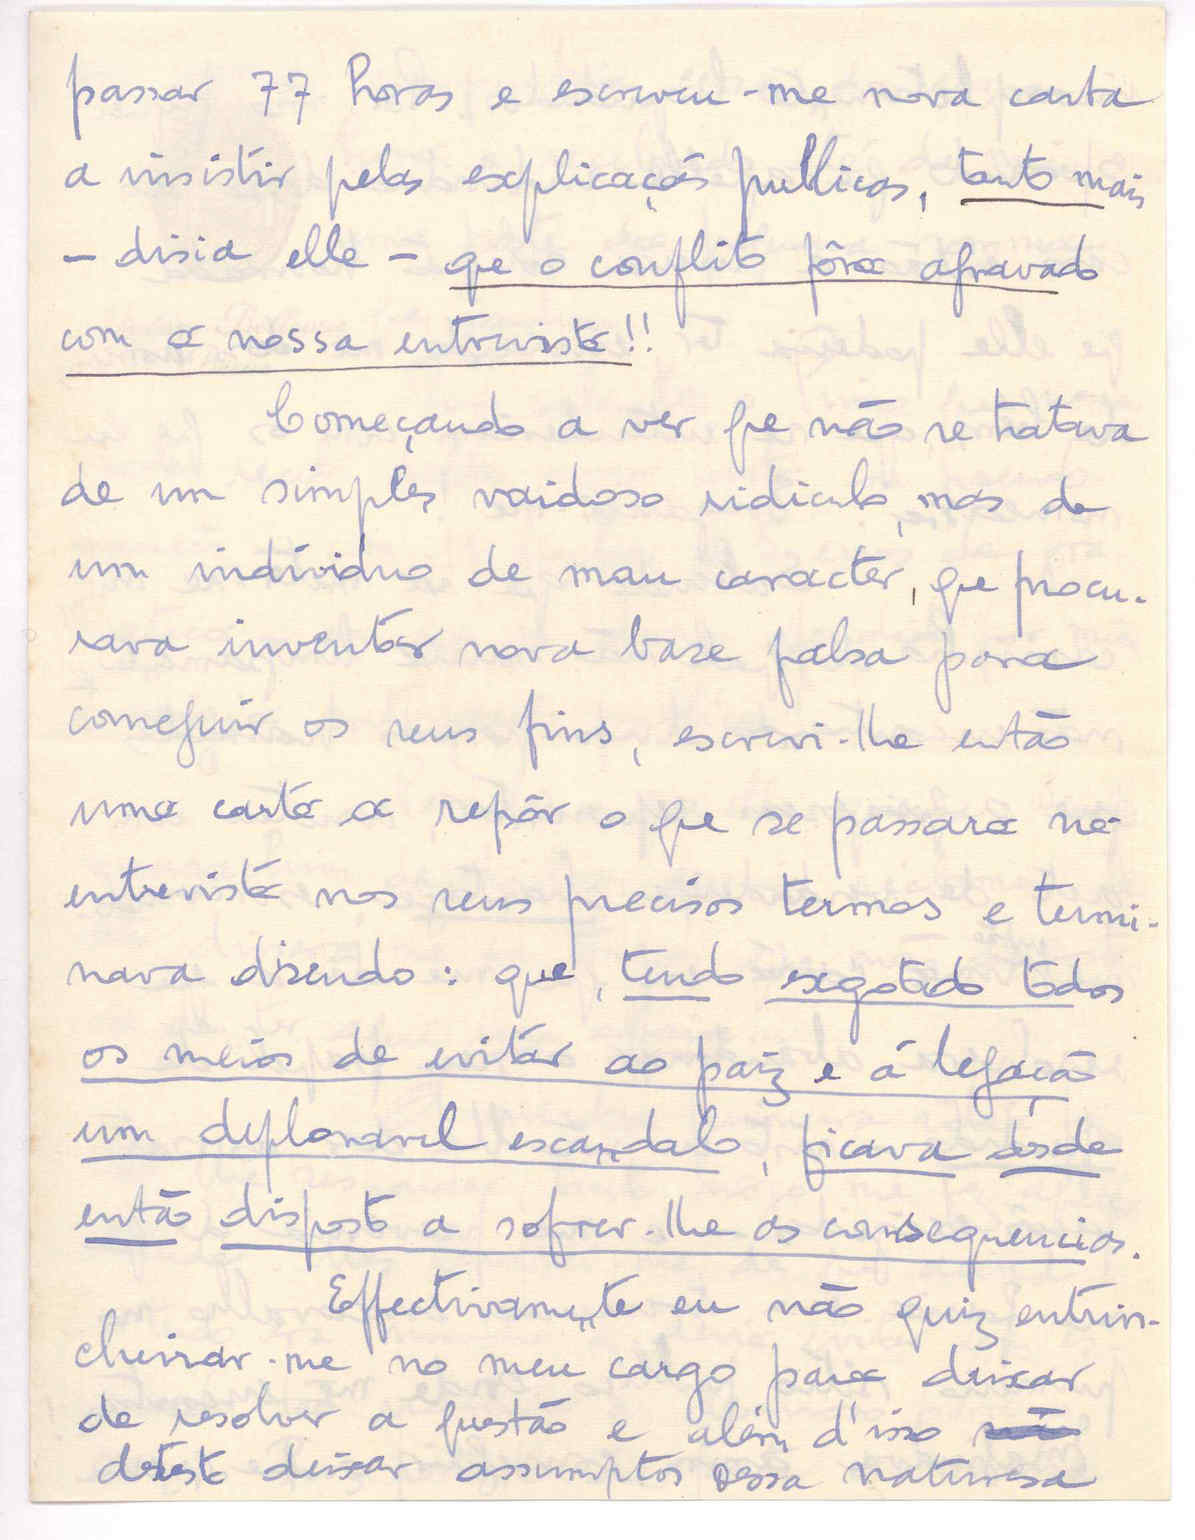 passar 77 horas e escreveu-me nova carta
a insistir pelas explicações publicas, tanto mais
– disia elle – que o conflito fôra agravado
com a nossa entrevista!!
Começando a ver que não se tratava
de um simples vaidoso ridiculo, mas de
um indíviduo de mau caracter, que procu-
rava inventar nova base falsa para
conseguir os seus fins, escrevi-lhe então
uma carta a repôr o que se passara na
entrevista nos seus precisos termos e termi-
nava disendo: que, tendo exgotado todos
os meios de evitar ao paiz e á legação
um deploravel escandalo, ficava desde
então disposto a sofrer-lhe as consequencias.
Effectivamente eu não quiz entrin-
cheirar-me no meu cargo para deixar
de resolver a questão e além d'isso não
detesto deixar assumptos dessa naturesa